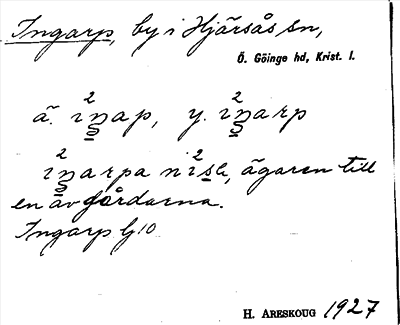 Ingarp, by i Hjärsås sn,
Ö. Göinge hd, Krist. l.
ä. iŋap, y. iŋarp
iŋarpa nisa, ägaren till
en av gårdarna.
Ingarp Lj 10
H. ARESKOUG 1927